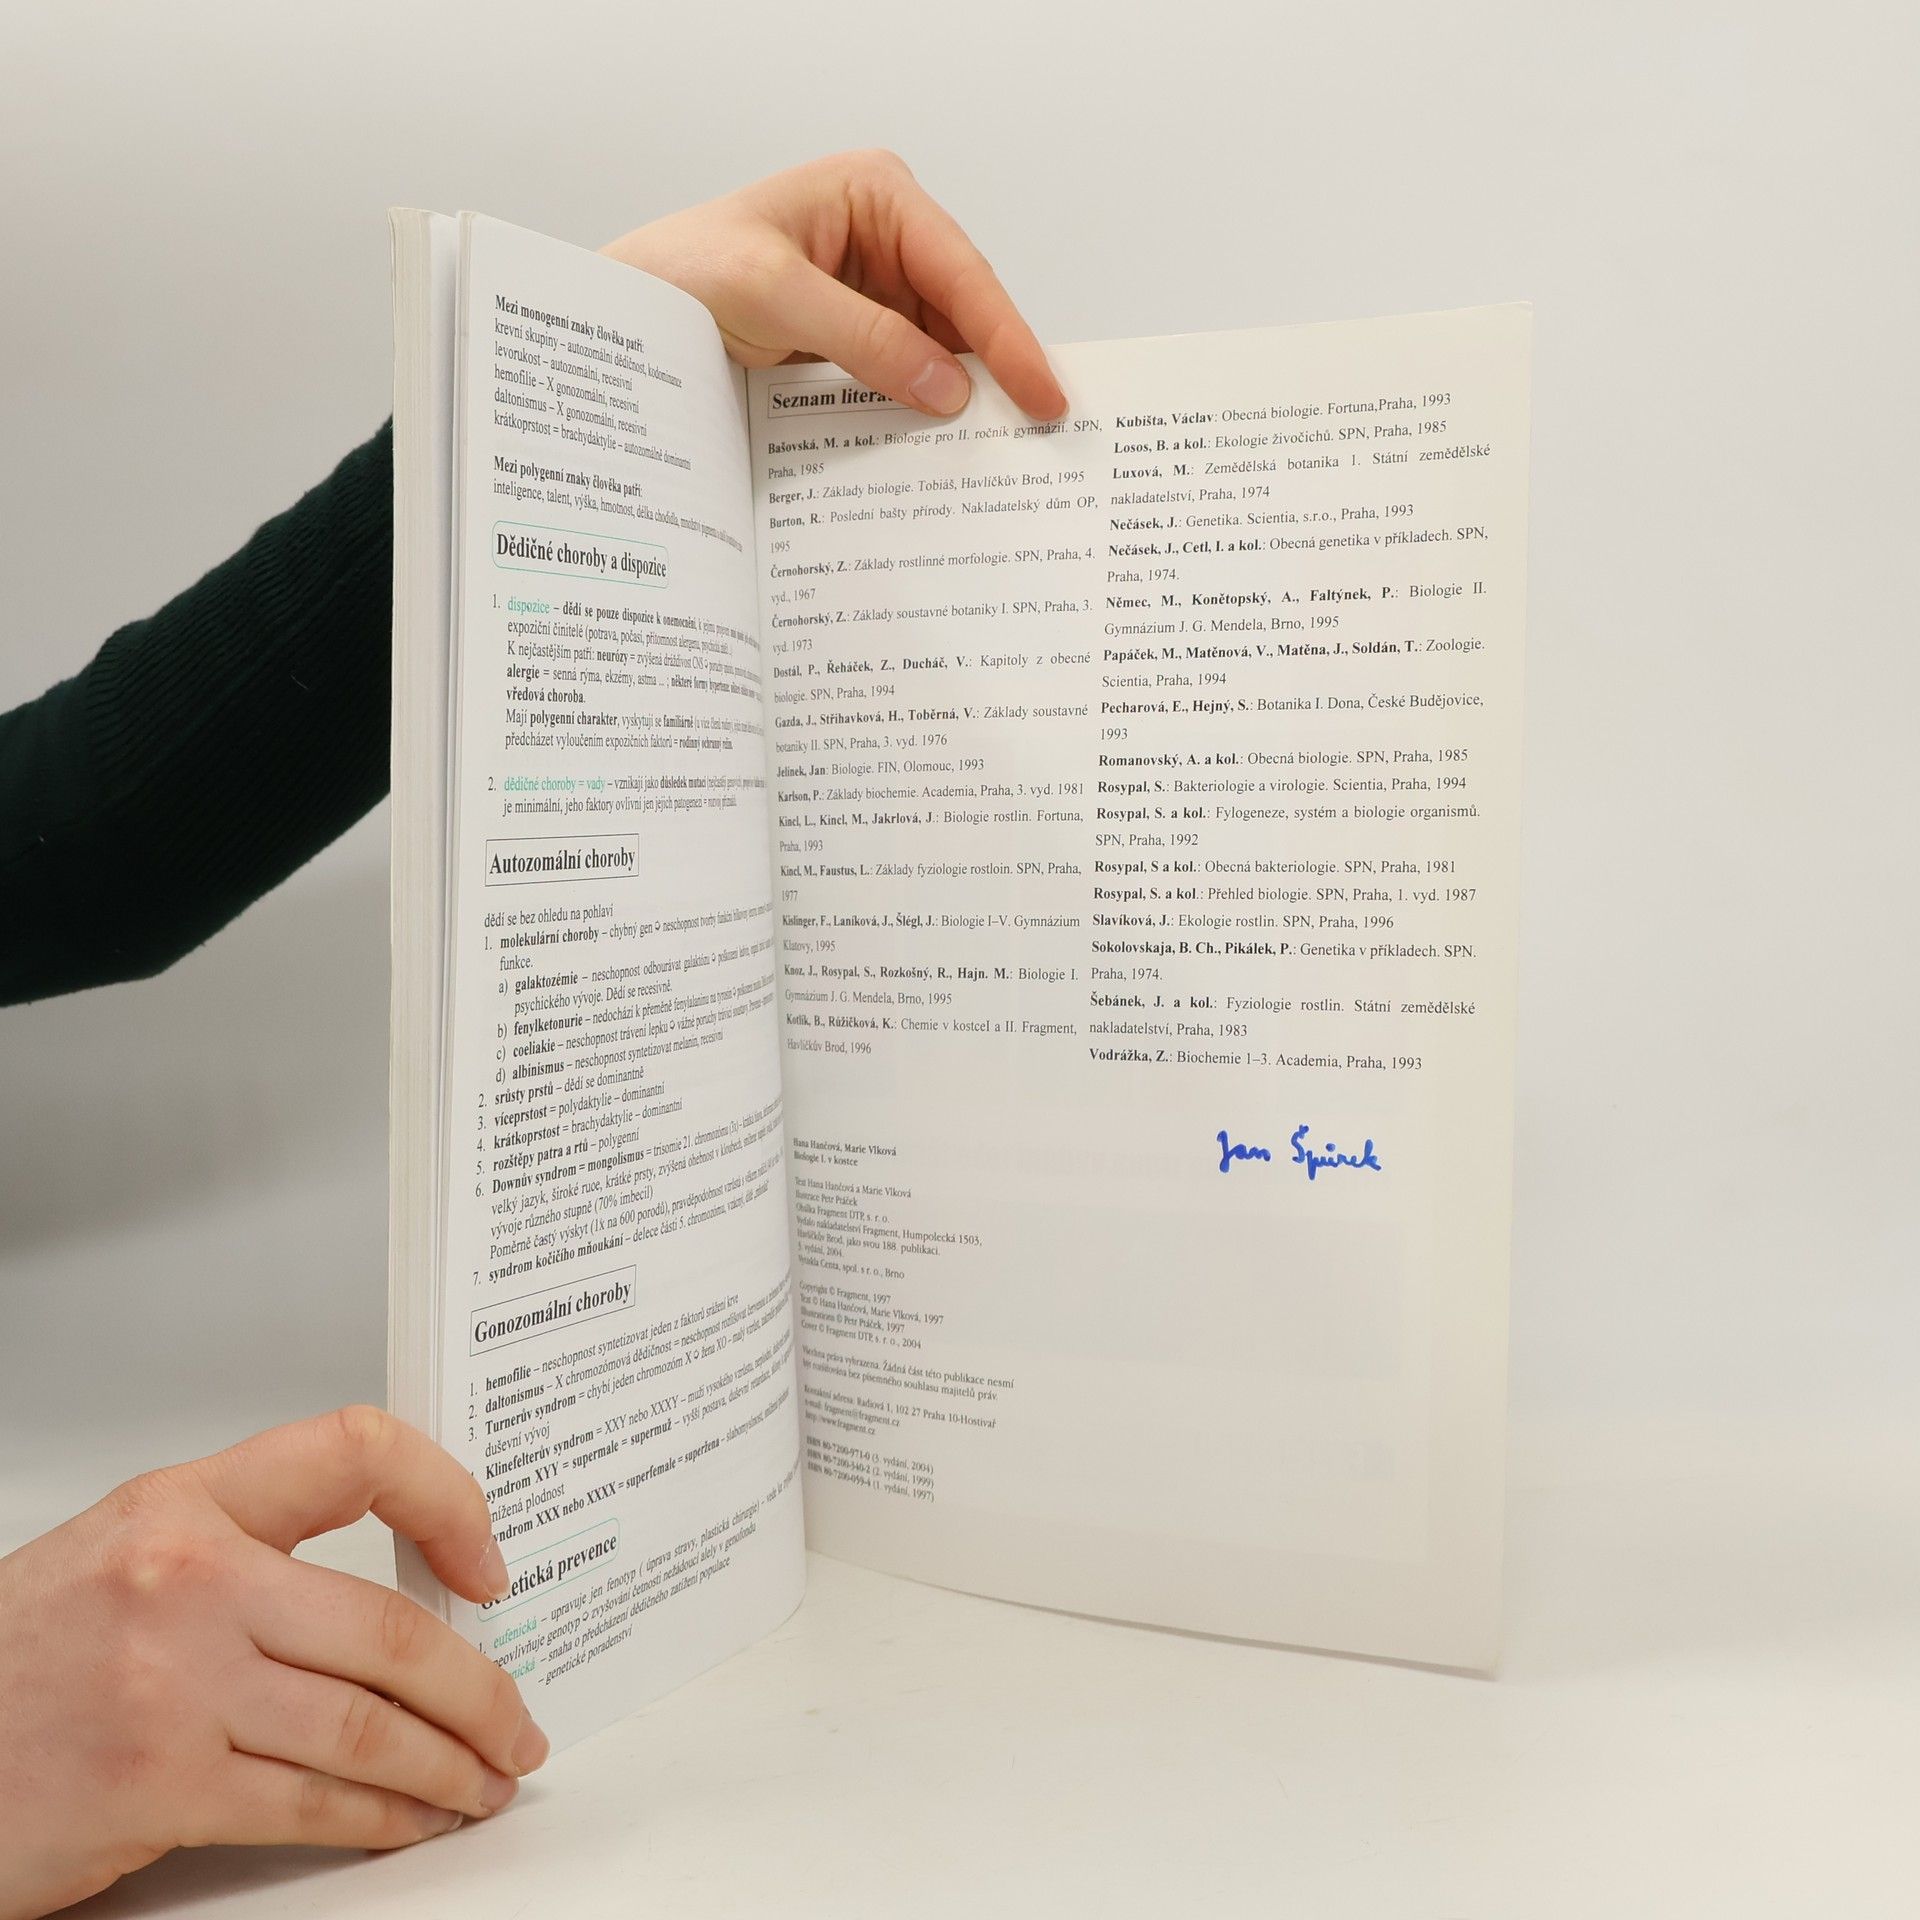 Mezi monogenní znaky člověka patří:
krevní skupiny – autozomální dědičnost, kodominance
levorukost – autozomální, recesivní
hemofilie – X gonozomální, recesivní
daltonismus – X gonozomální, recesivní
krátkoprstost = brachydaktylie – autozomálně dominantní
Mezi polygenní znaky člověka patří:
inteligence, talent, výška, hmotnost, délka chodidla, množství pigmentu
Dědičné choroby a dispozice
1. dispozice – dědí se pouze dispozice k onemocnění, k jejímu projevu
expoziční činitelé (potrava, počasí, přítomnost alergenu, psychická zátěž...)
K nejčastějším patří: neurózy = zvýšená dráždivost CNS
alergie = senná rýma, ekzémy, astma ... ; některé formy hypertenze,
vředová choroba.
Mají polygenní charakter, vyskytují se familiárně (u více členů rodiny),
předcházet vyloučením expozičních faktorů = rodinný ochranný režim.
2. dědičné choroby = vady – vznikají jako důsledek mutací
je minimální, jeho faktory ovlivní jen jejich patogenezi = rozvoj příznaků.
Autozomální choroby
dědí se bez ohledu na pohlaví
1. molekulární choroby – chybný gen ➪ neschopnost tvorby funkční bílkoviny
funkce.
a) galaktozémie – neschopnost odbourávat galaktózu ➪ poškození
psychického vývoje. Dědí se recesivně.
b) fenylketonurie – nedochází k přeměně fenylalaninu na tyrosin ➪
c) coeliakie – neschopnost trávení lepku ➪ vážné poruchy trávicí soustavy.
d) albinismus – neschopnost syntetizovat melanin, recesivní
2. srůsty prstů – dědí se dominantně
3. víceprstost = polydaktylie – dominantní
4. krátkoprstost = brachydaktylie – dominantní
5. rozštěpy patra a rtů – polygenní
6. Downův syndrom = mongolismus = trisomie 21. chromozómu (3x) – krátká hlava,
velký jazyk, široké ruce, krátké prsty, zvýšená ohebnost v kloubech,
vývoje různého stupně (70% imbecil)
Poměrně častý výskyt (1x na 600 porodů), pravděpodobnost vzrůstá s věkem
7. syndrom kočičího mňoukání – delece části 5. chromozómu, vzácný,
Gonozomální choroby
1. hemofilie – neschopnost syntetizovat jeden z faktorů srážení krve
2. daltonismus – X chromozómová dědičnost = neschopnost rozlišovat červenou a
3. Turnerův syndrom = chybí jeden chromozóm X ➪ žena XO – malý vzrůst,
duševní vývoj
Klinefelterův syndrom = XXY nebo XXXY – muži vysokého vzrůstu, neplodní,
syndrom XYY = supermale = supermuž – vyšší postava, duševní retardace,
nížená plodnost
yndrom XXX nebo XXXX = superfemale = superžena – slabomyslnost,
etická prevence
1. eufenická – upravuje jen fenotyp ( úprava stravy, plastická chirurgie) –
neovlivňuje genotyp ➪ zvyšování četnosti nežádoucí alely v genofondu
nická – snaha o předcházení dědičného zatížení populace
– genetické poradenství
Seznam litera
Bašovská, M. a kol.: Biologie pro II. ročník gymnázií. SPN,
Praha, 1985
Berger, J.: Základy biologie. Tobiáš, Havlíčkův Brod, 1995
Burton, R.: Poslední bašty přírody. Nakladatelský dům OP,
1995
Černohorský, Z.: Základy rostlinné morfologie. SPN, Praha, 4.
vyd., 1967
Černohorský, Z.: Základy soustavné botaniky I. SPN, Praha, 3.
vyd. 1973
Dostál, P., Řeháček, Z., Ducháč, V.: Kapitoly z obecné
biologie. SPN, Praha, 1994
Gazda, J., Střihavková, H., Toběrná, V.: Základy soustavné
botaniky II. SPN, Praha, 3. vyd. 1976
Jelínek, Jan: Biologie. FIN, Olomouc, 1993
Karlson, P.: Základy biochemie. Academia, Praha, 3. vyd. 1981
Kincl, L., Kincl, M., Jakrlová, J.: Biologie rostlin. Fortuna,
Praha, 1993
Kincl, M., Faustus, L.: Základy fyziologie rostloin. SPN, Praha,
1977
Kislinger, F., Laníková, J., Šlégl, J.: Biologie I–V. Gymnázium
Klatovy, 1995
Knoz, J., Rosypal, S., Rozkošný, R., Hajn. M.: Biologie I.
Gymnázium J. G. Mendela, Brno, 1995
Kotlík, B., Růžičková, K.: Chemie v kostceI a II. Fragment,
Havlíčkův Brod, 1996
Kubišta, Václav: Obecná biologie. Fortuna,Praha, 1993
Losos, B. a kol.: Ekologie živočichů. SPN, Praha, 1985
Luxová, M.: Zemědělská botanika 1. Státní zemědělské
nakladatelství, Praha, 1974
Nečásek, J.: Genetika. Scientia, s.r.o., Praha, 1993
Nečásek, J., Cetl, I. a kol.: Obecná genetika v příkladech. SPN,
Praha, 1974.
Němec, M., Konětopský, A., Faltýnek, P.: Biologie II.
Gymnázium J. G. Mendela, Brno, 1995
Papáček, M., Matěnová, V., Matěna, J., Soldán, T.: Zoologie.
Scientia, Praha, 1994
Pecharová, E., Hejný, S.: Botanika I. Dona, České Budějovice,
1993
Romanovský, A. a kol.: Obecná biologie. SPN, Praha, 1985
Rosypal, S.: Bakteriologie a virologie. Scientia, Praha, 1994
Rosypal, S. a kol.: Fylogeneze, systém a biologie organismů.
SPN, Praha, 1992
Rosypal, S a kol.: Obecná bakteriologie. SPN, Praha, 1981
Rosypal, S. a kol.: Přehled biologie. SPN, Praha, 1. vyd. 1987
Slavíková, J.: Ekologie rostlin. SPN, Praha, 1996
Sokolovskaja, B. Ch., Pikálek, P.: Genetika v příkladech. SPN.
Praha, 1974.
Šebánek, J. a kol.: Fyziologie rostlin. Státní zemědělské
nakladatelství, Praha, 1983
Vodrážka, Z.: Biochemie 1–3. Academia, Praha, 1993
Jan Špúrek
Hana Hančová, Marie Vlková
Biologie I. v kostce
Text Hana Hančová a Marie Vlková
Ilustrace Petr Ptáček
Obálka Fragment DTP, s. r. o.
Vydalo nakladatelství Fragment, Humpolecká 1503,
Havlíčkův Brod, jako svou 188. publikaci.
3. vydání, 2004.
Vytiskla Centa, spol. s r. o., Brno
Copyright © Fragment, 1997
Text © Hana Hančová, Marie Vlková, 1997
Illustrations © Petr Ptáček, 1997
Cover © Fragment DTP, s. r. o., 2004
Všechna práva vyhrazena. Žádná část této publikace nesmí
být rozšiřována bez písemného souhlasu majitelů práv.
Kontaktní adresa: Radiová 1, 102 27 Praha 10-Hostivař
e-mail: fragment@fragment.cz
http://www.fragment.cz
ISBN 80-7200-971-0 (3. vydání, 2004)
ISBN 80-7200-340-2 (2. vydání, 1999)
ISBN 80-7200-059-4 (1. vydání, 1997)